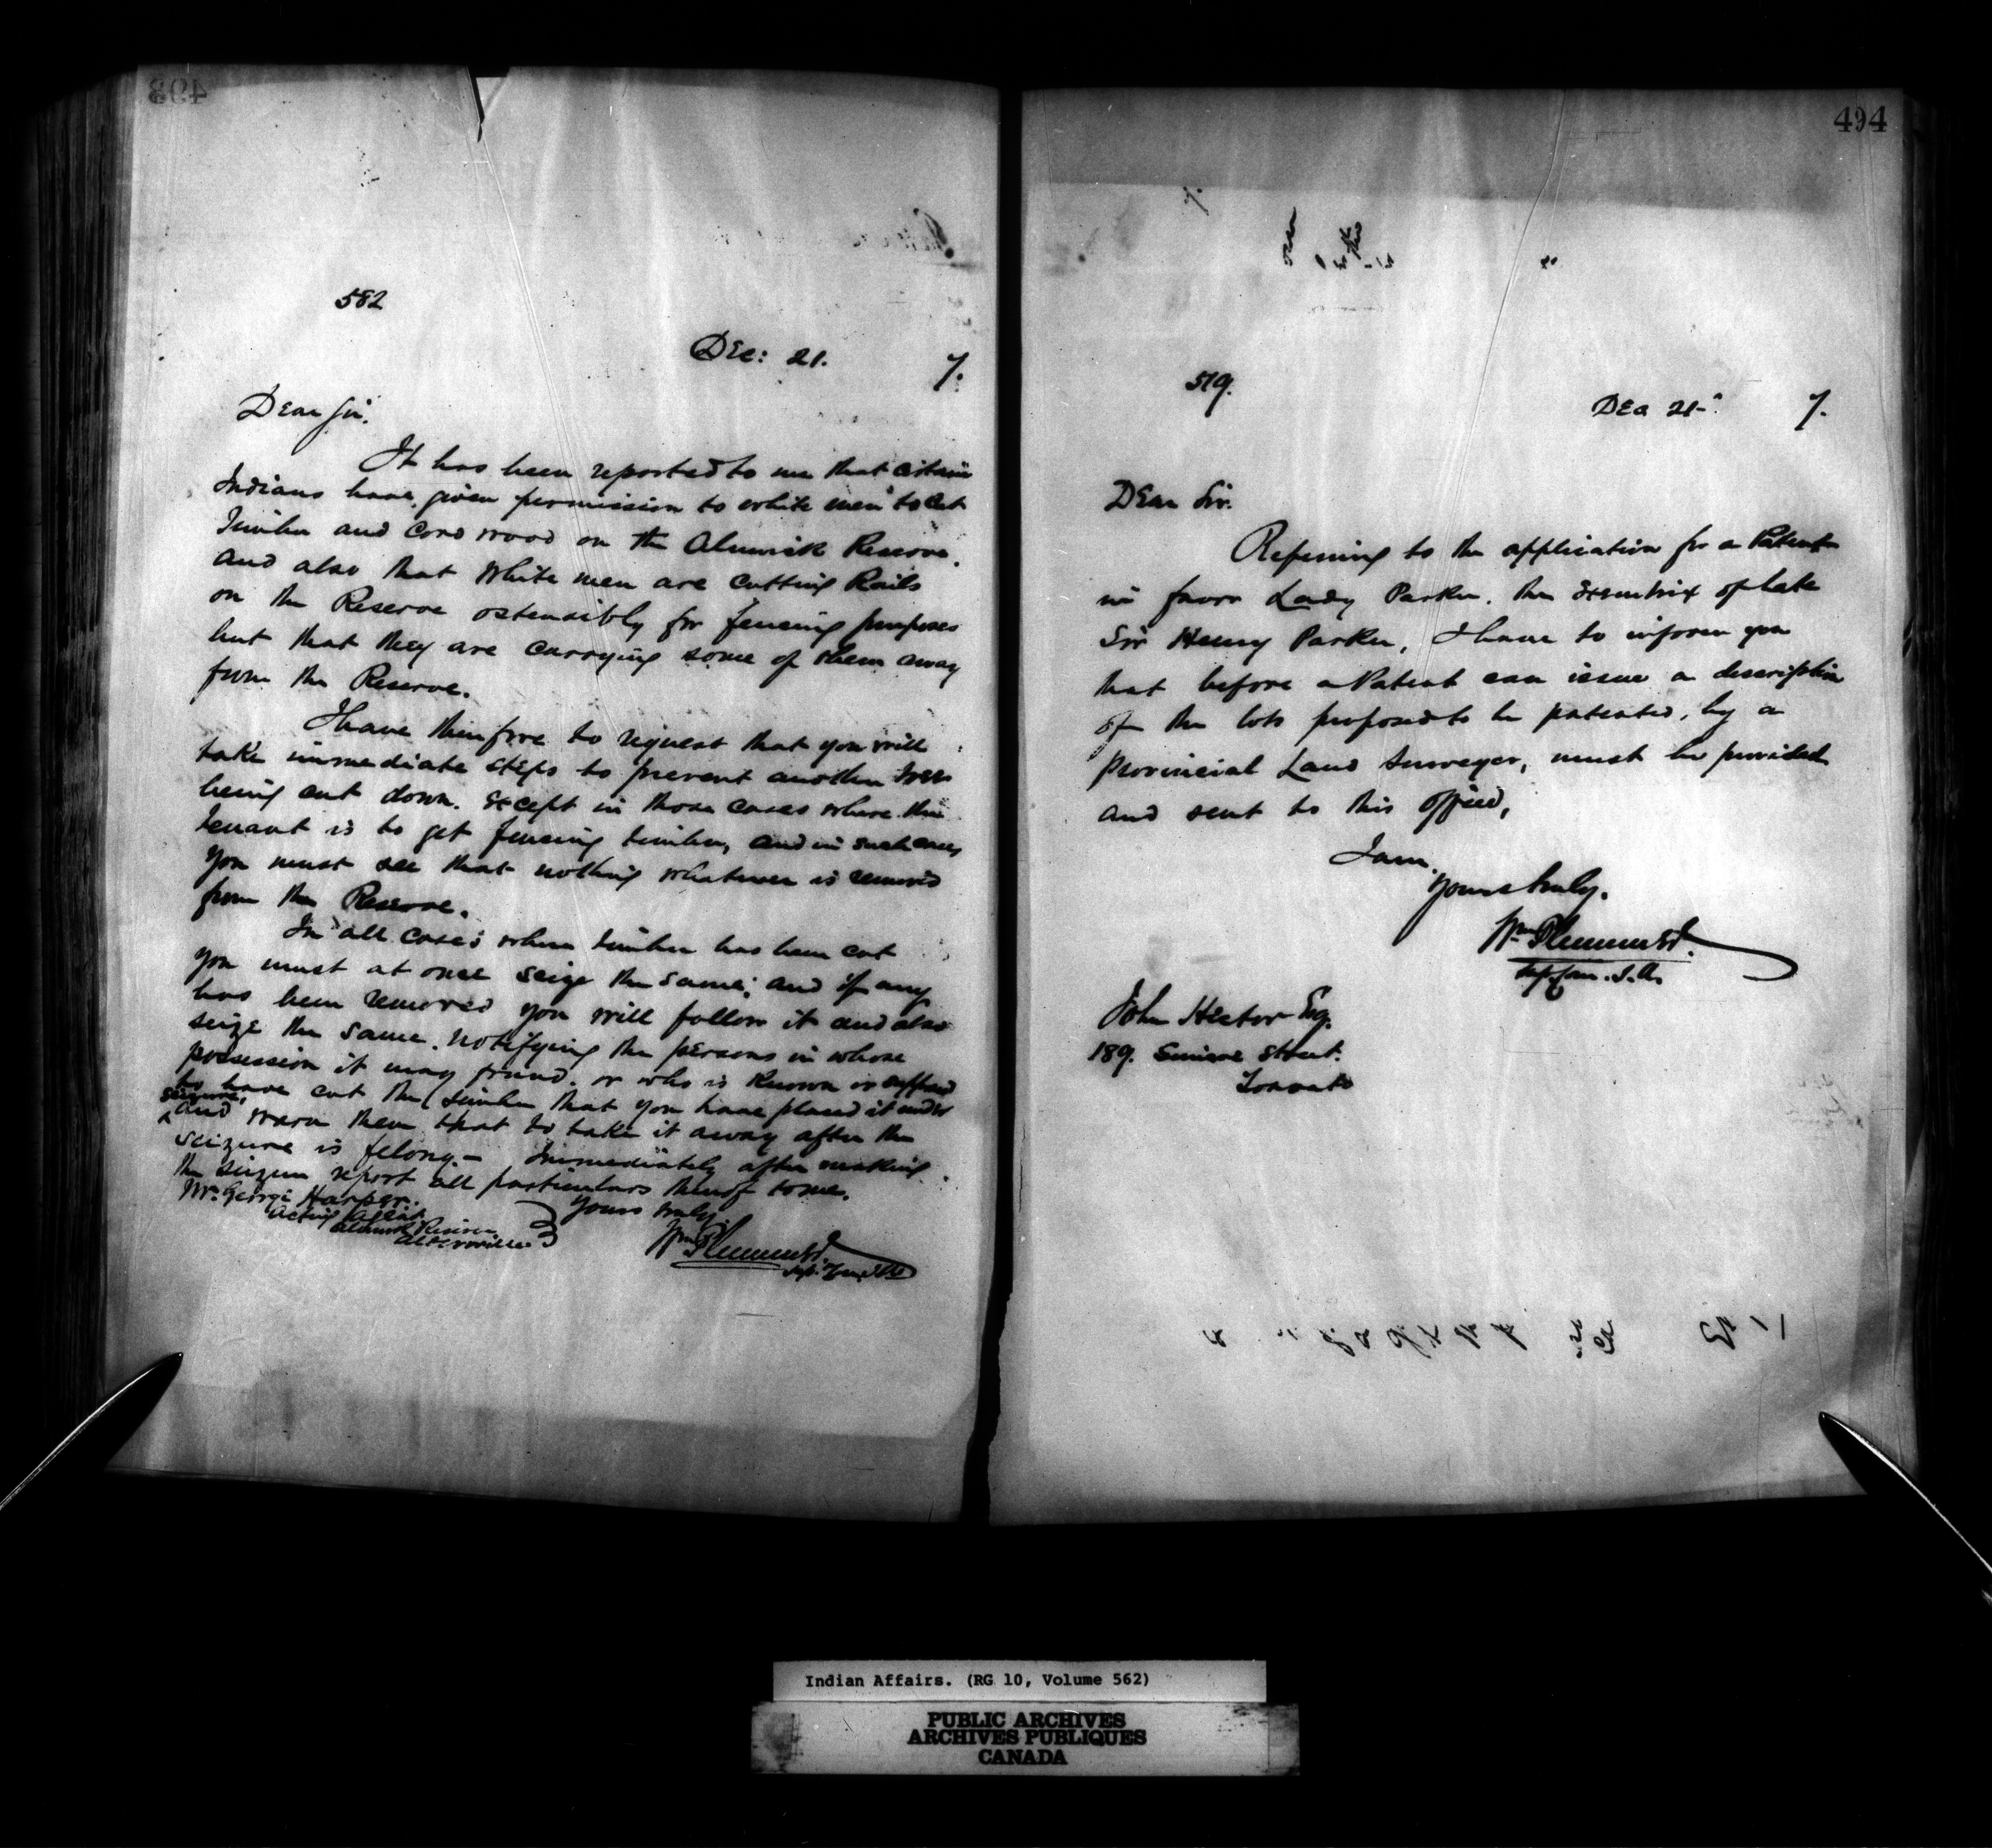 493
582
Dec: 21. 7.
Dear Sir.
It has been reported to me that certain
Indians have given permission to white men to cut
Timber and Cord wood on the Alnwick Reserve.
and also that white men are cutting Rails
on the Reserve ostensibly for fencing purposes
but that they are carrying some of them away
from the Reserve.
I have therefore to request that you will
take immediate steps to prevent another tree
being cut down. except in those cases where the
tenant is to get fencing timber, and in such cases
you must see that nothing whatever is removed
from the Reserve.
In all cases where timber has been cut
you must at once seize the same; and if any
has been removed you will follow it and also
seize the same. notifying the persons in whose
possession it may found. or who is known or supposed
to have cut the timber that you have placed it under
seizure,
and warn them that to take it away after the
seizure is felony.— Immediately after making
the seizure report all particulars thereof to me.
Mr. George Harper. Yours truly
Acting Agent
Alnwick Reserve
Alderville
Wm Plummer
Sup. Com.
494
579.
Dec 21- 7.
Dear Sir.
Referring to the application for a Patent
in favor Lady Parker, the Executrix of late
Sir Henry Parker, I have to inform you
that before a Patent can issue a description
of the lots proposed to be patented, by a
Provincial Land Surveyor, must be provided
and sent to this office,
I am
yours truly.
Wm Plummer
Sup. Com. I. A.
John Hector Esq.
189. Simcoe Street.
Toronto
Indian Affairs. (RG 10, Volume 562)
PUBLIC ARCHIVES
ARCHIVES PUBLIQUES
CANADA